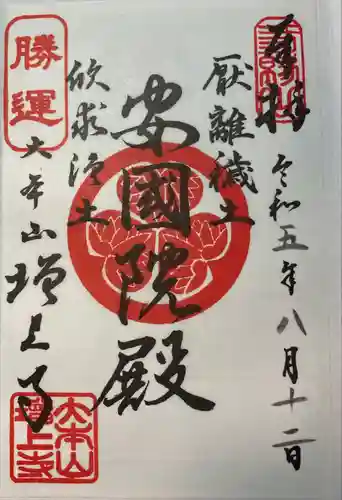 奉拝
令和五年八月十二日
厭離穢土
安國院殿
欣求浄土
勝運
大本山
増上寺
大本山
増上寺